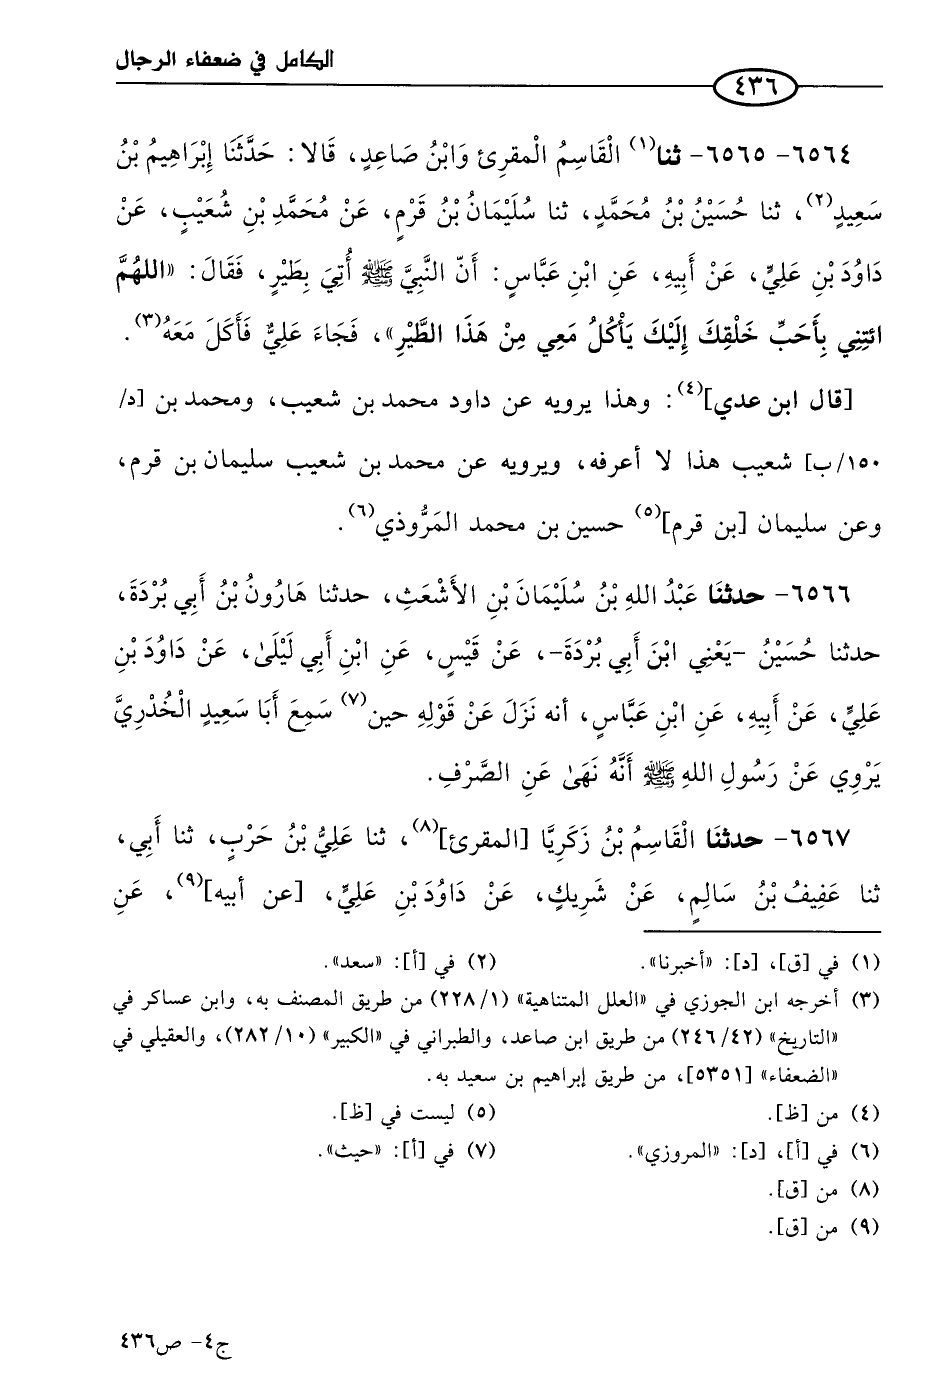 الكامل في ضعفاء الرجال
٤٣٦
٦٥٦٤- ٦٥٦٥- ثنا(١) الْقَاسِمُ الْمقرِئ وَابْنُ صَاعِدٍ، قَالا: حَدَّثَنَا إِبْرَاهِيمُ بْنُ
سَعِيدٍ(٢)، ثنا حُسَيْنُ بْنُ مُحَمَّدٍ، ثنا سُلَيْمَانُ بْنُ قَرْمٍ، عَنْ مُحَمَّدِ بْنِ شُعَيْبٍ، عَنْ
دَاوُدَ بْنِ عَلِيٍّ، عَنْ أَبِيهِ، عَنِ ابْنِ عَبَّاسٍ: أَنّ النَّبِيَّ ﷺ أُتِيَ بِطَيْرٍ، فَقَالَ: «اللهُمَّ
ائتِنِي بِأَحَبِّ خَلْقِكَ إِلَيْكَ يَأْكُلُ مَعِي مِنْ هَذَا الطَّيْرِ»، فَجَاءَ عَلِيٌّ فَأَكَلَ مَعَهُ(٣).
[قال ابن عدي](٤): وهذا يرويه عن داود محمد بن شعيب، ومحمد بن [د/
١٥٠/ب] شعيب هذا لا أعرفه، ويرويه عن محمد بن شعيب سليمان بن قرم،
وعن سليمان [بن قرم](٥) حسين بن محمد المَرُّوذي(٦).
٦٥٦٦- حدثنَا عَبْدُ اللهِ بْنُ سُلَيْمَانَ بْنِ الأَشْعَثِ، حدثنا هَارُونُ بْنُ أَبِي بُرْدَةَ،
حدثنا حُسَيْنُ -يَعْنِي ابْنَ أَبِي بُرْدَةَ-، عَنْ قَيْسٍ، عَنِ ابْنِ أَبِي لَيْلَىٰ، عَنْ دَاوُدَ بْنِ
عَلِيٍّ، عَنْ أَبِيهِ، عَنِ ابْنِ عَبَّاسٍ، أنه نَزَلَ عَنْ قَوْلِهِ حين(٧) سَمِعَ أَبَا سَعِيدٍ الْخُدْرِيَّ
يَرْوِي عَنْ رَسُولِ اللهِ ﷺ أَنَّهُ نَهَىٰ عَنِ الصَّرْفِ.
٦٥٦٧- حدثنَا الْقَاسِمُ بْنُ زَكَرِيَّا [المقرئ](٨)، ثنا عَلِيُّ بْنُ حَرْبٍ، ثنا أَبِي،
ثنا عَفِيفُ بْنُ سَالِمٍ، عَنْ شَرِيكٍ، عَنْ دَاوُدَ بْنِ عَلِيٍّ، [عن أبيه](٩)، عَنِ
(١) في [ق]، [د]: «أخبرنا». (٢) في [أ]: «سعد».
(٣) أخرجه ابن الجوزي في «العلل المتناهية» (٢٢٨/١) من طريق المصنف به، وابن عساكر في
«التاريخ» (٢٤٦/٤٢) من طريق ابن صاعد، والطبراني في «الكبير» (٢٨٢/١٠)، والعقيلي في
«الضعفاء» [٥٣٥١]، من طريق إبراهيم بن سعيد به.
(٤) من [ظ]. (٥) ليست في [ظ].
(٦) في [أ]، [د]: «المروزي». (٧) في [أ]: «حيث».
(٨) من [ق].
(٩) من [ق].
ج٤- ص٤٣٦